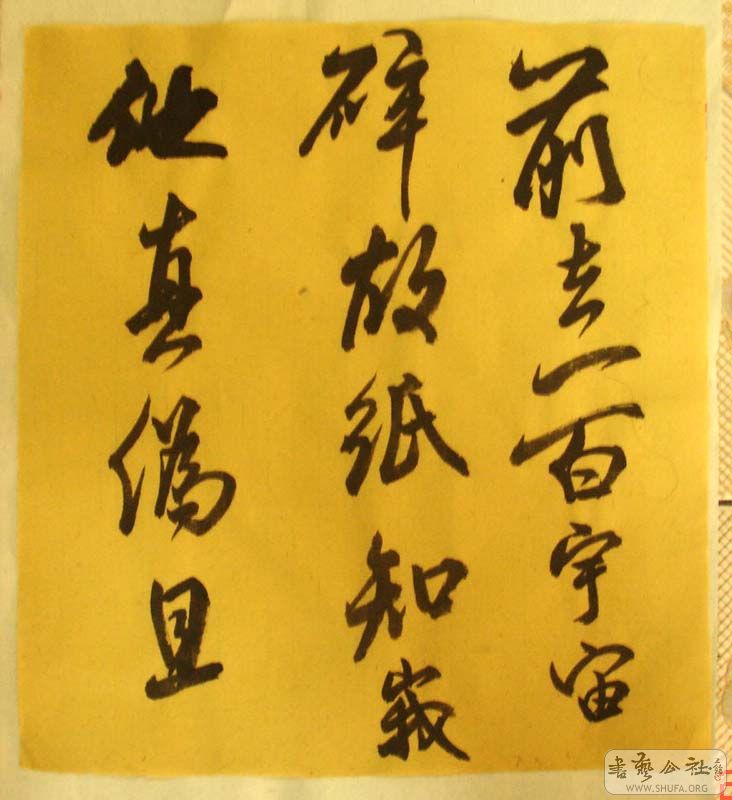 前去一百宇宙
碎故紙知幾
他真偽且
書藝公社
WWW.SHUFA.ORG